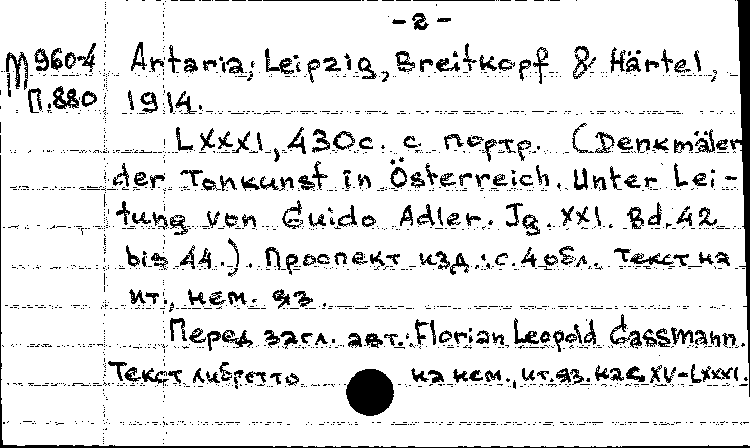 -2-
М 960-4 Artaria; Leipzig, Breitkopf & Härtel,
П.880 1914.
LXXXI, 430с. с портр. (Denkmäler
der Tonkunst in Österreich. Unter Lei-
tung von Guido Adler. Jg. XXI. Bd. 42
bis 44.). Проспект изд.: с. 4 обл. Текст на
ит., нем. яз.
Перед загл. авт.: Florian Leopold Gassmann.
Текст либретто на нем., ит. яз. на с. XV-LXXXI.